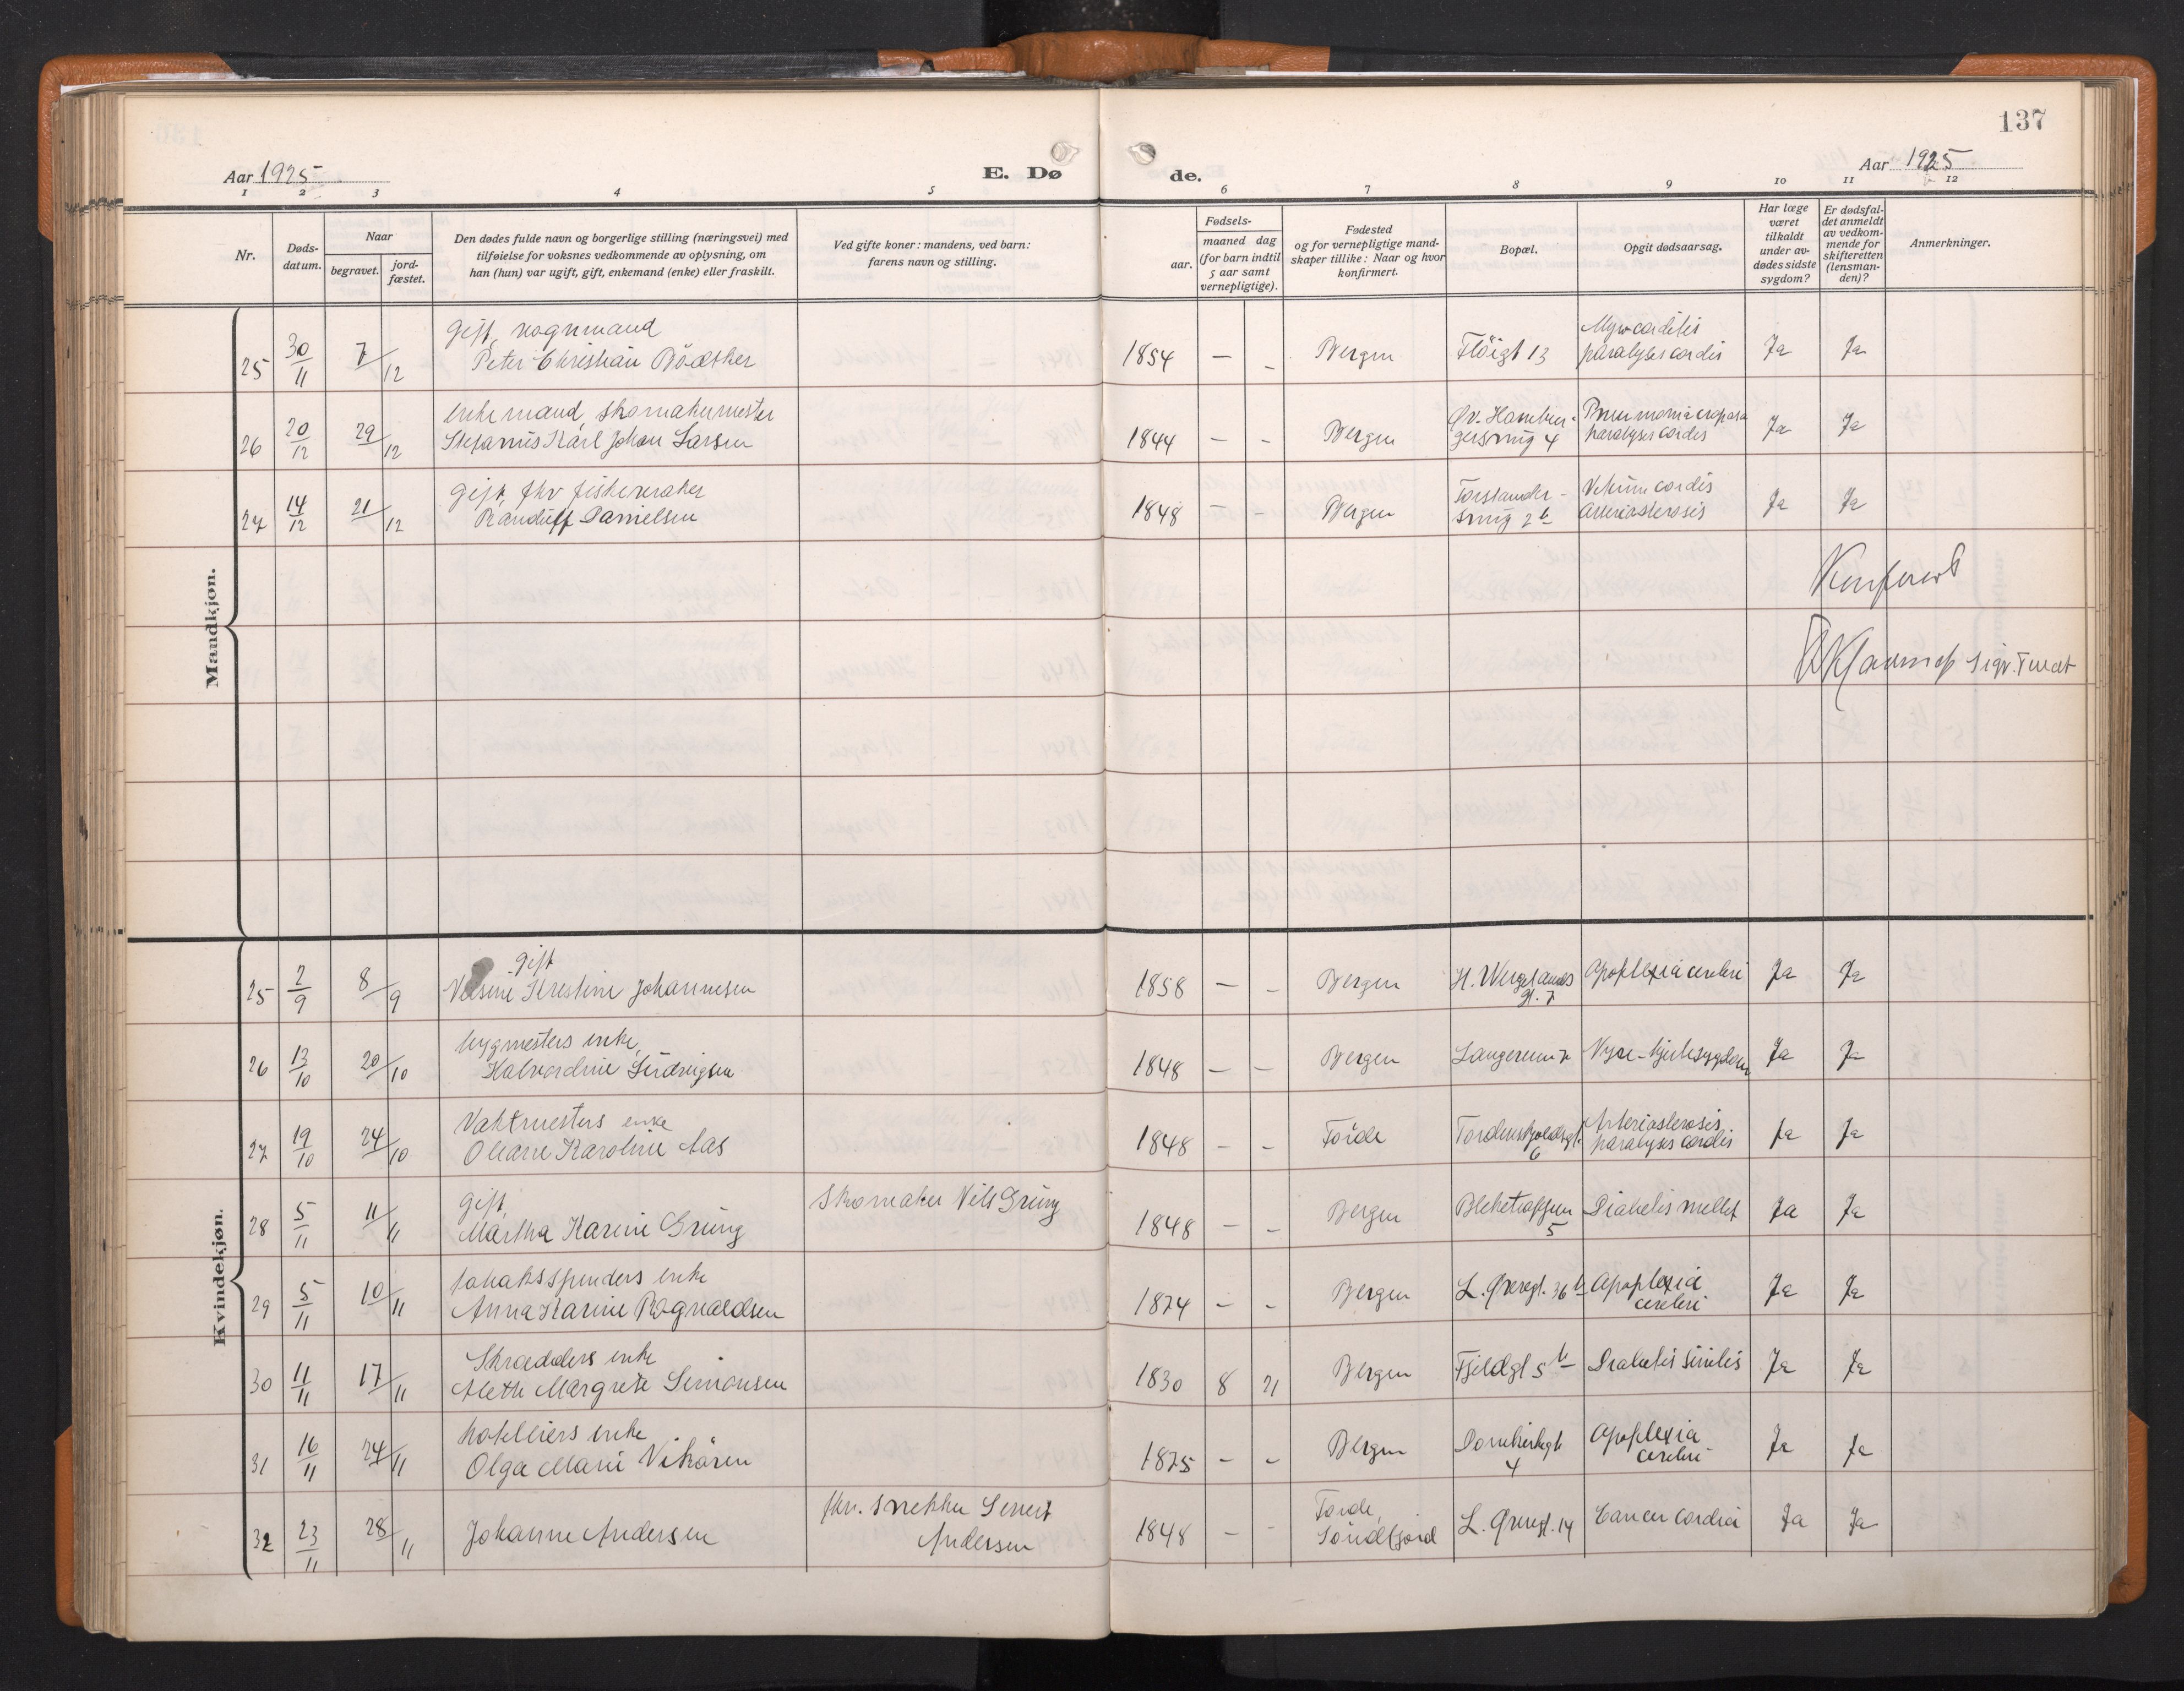 137
Aar 1925
E. Dø
de.
Aar 1925
1 2 3 4 5 6 7 8 9 10 11 12
Nr.
Døds-
datum.
Naar
begravet.
jord-
fæstet.
Den dødes fulde navn og borgerlige stilling (næringsvei) med
tilføielse for voksnes vedkommende av oplysning, om
han (hun) var ugift, gift, enkemand (enke) eller fraskilt.
Ved gifte koner: mandens, ved barn:
farens navn og stilling.
Fødsels-
aar.
maaned dag
(for barn indtil
5 aar samt
vernepligtige).
Fødested
og for vernepligtige mand-
skaper tillike: Naar og hvor
konfirmert.
Bopæl.
Opgit dødsaarsag.
Har læge
været
tilkaldt
under av-
dødes sidste
sygdom?
Er dødsfal-
det anmeldt
av vedkom-
mende for
skifteretten
(lensman-
den)?
Anmerkninger.
Mandkjøn.
25 30/11 7/12 Gift, vognmand
Peter Christian Bödtker
1854 — – Bergen Fløigt 13 Myocarditis
paralyses cordis Ja Ja
26 20/12 29/12 enkemand, skomakermester
Stefanus Karl Johan Larsen
1844 – – Bergen Øv. Hambur-
gersmug 4 Pneumonia cruposa
paralyses cordis Ja Ja
27 14/12 21/12 Gift, fhv fiskevraker
Randulff Danielsen
1848 – – Bergen Forstander-
smug 2b Vitium cordis
Arteriosclerosis Ja Ja
Konferert
Sigv. Tveit
Kvindekjøn.
25 2/9 8/9 gift
Johannesen
1858 — – Bergen H. Wergelands
gt. 7 Apoplexia cerebri Ja Ja
26 13/10 20/10 bygmesters enke,
Halvordine Ludvigsen
1848 – – Bergen Nyre-hjertesygdom Ja Ja
27 19/10 24/10 Vaktmesters enke
Oleane Karoline Aas
1848 – – Förde Tordenskjoldsgt.
6 Arteriosclerosis
paralyses cordis Ja Ja
28 5/11 11/11 gift,
Martha Karine Grung
Skomaker Nils Grung
1848 – – Bergen 5 Diabetes mellit Ja Ja
29 5/11 10/11 tobaksspinders enke
Anna Karine Rognaldsen
1874 – – Bergen L. Øvregt. 36b Apoplexia
cerebri Ja Ja
30 11/11 17/11 Skrædders enke
Alette Margrete Simonsen
1830 8 21 Bergen Fjeldgt 5b Diabetes senilis Ja Ja
31 16/11 24/11 hotelliers enke
Olga Marie Vikören
1875 – – Bergen Domkirkegt
4 Apoplexia
cerebri Ja Ja
32 23/11 28/11 Johanne Andersen
fhv. snekker Sivert
Andersen
1848 – – Förde,
Söndfjord L. Øvregt. 14 Cancer cardia Ja Ja